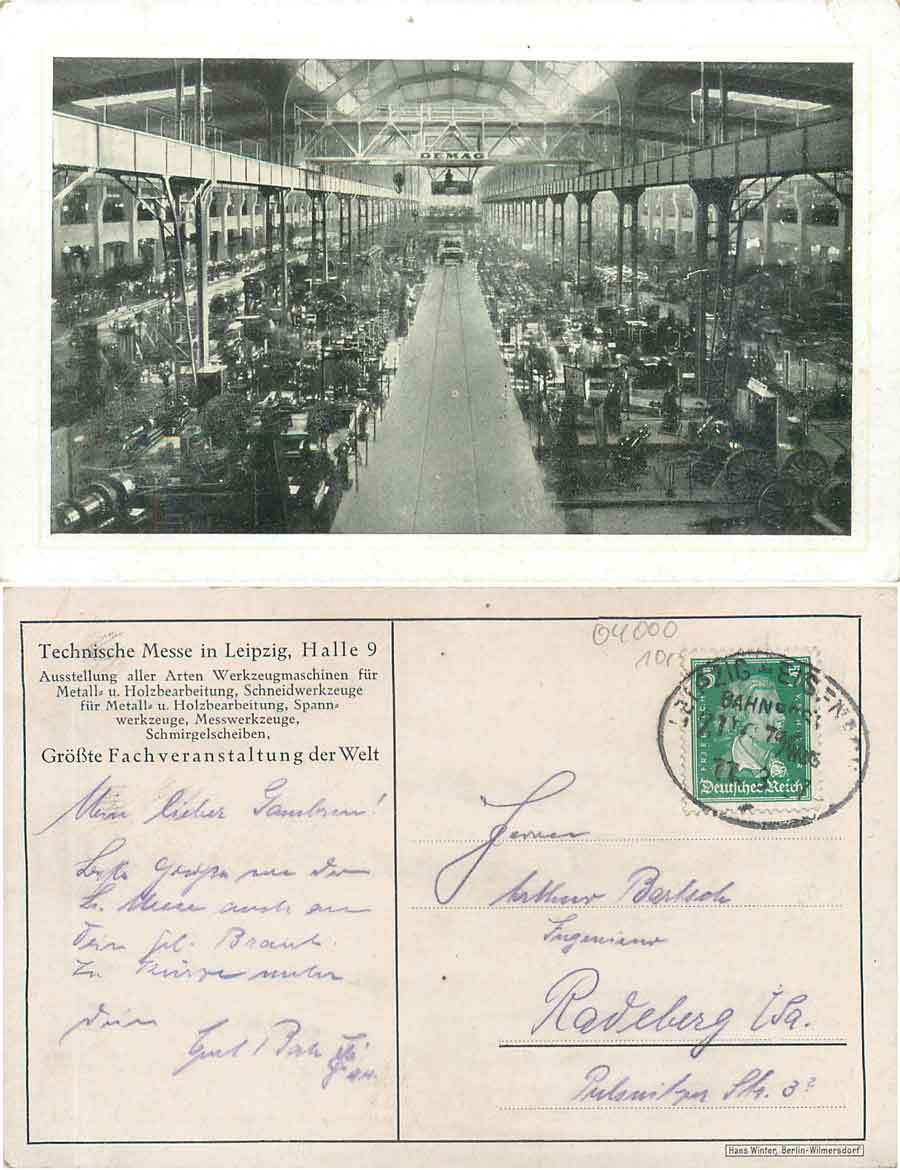 DEMAG
Technische Messe in Leipzig, Halle 9
Ausstellung aller Arten Werkzeugmaschinen für
Metall- u. Holzbearbeitung, Schneidwerkzeuge
für Metall- u. Holzbearbeitung, Spann-
werkzeuge, Messwerkzeuge,
Schmirgelscheiben,
Größte Fachveranstaltung der Welt
Mein lieber
Beste Grüße von der
L. Messe auch an
Braut.
In Kürze
Dein
04000
10,-
LEIPZIG
BAHNPOST
ZUG
5
Deutsches Reich
Herrn
Arthur Bartsch
Ingenieur
Radeberg i/Sa.
Pulsnitzer Str. 3
Hans Winter, Berlin-Wilmersdorf